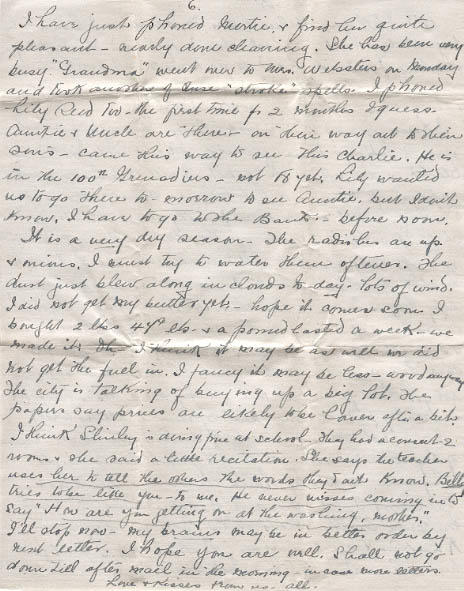 6.
I have just phoned Gertie & find her quite
pleasant - nearly done cleaning. She has been very
busy. "Grandma" went over to Mrs. Websters on Monday
and took another of those "stroke" spells. I phoned
Lily Reid too - the first time for 2 months I guess.
Auntie & Uncle are there - on their way out to their
sons - came this way to see this Charlie. He is
in the 100th Grenadiers - not 18 yet. Lily wanted
us to go there to-morrow to see Auntie. but I don't
know. I have to go to the Bank - before noon.
It is a very dry season - The radishes are up
& onions. I must try to water them oftener. The
dust just blew along in clouds to-day - lots of wind.
I did not get my butter yet - hope it comes soon I
bought 2 lbs 47¢ lb - & a pound lasted a week - we
made it. I think it may be as well we did
not get the fuel in. I fancy it may be less - wood anyway
The city is talking of buying up a big lot. The
papers say prices are likely to be lower after a bit.
I think Shirley is doing fine at school - They had a concert - 2
rooms & she said a little recitation. She says the teacher
uses her to tell the others the words they don't know. Bille
tries to be like you - to me. He never misses coming in to
say "How are you getting on at the washing, mother."
I'll stop now - my brains may be in better order by
next letter. I hope you are well. Shall not go
down till after mail in the morning - in case more letters.
Love & Kisses from us - all.